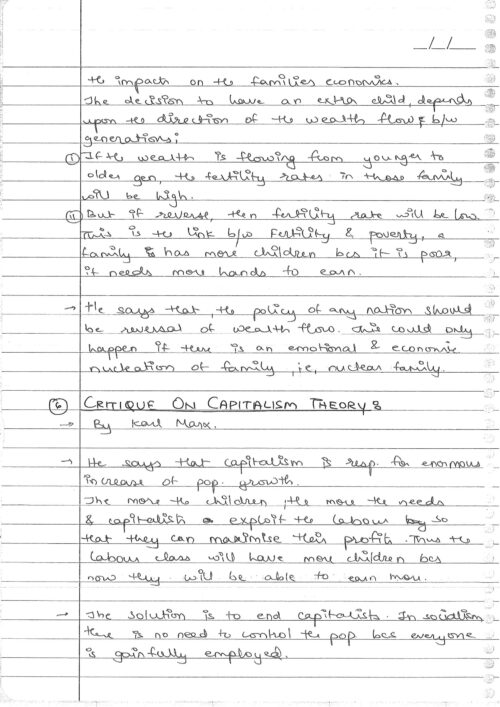 __/__/__
the impacts on the families economics.
The decision to have an extra child, depends
upon the direction of the wealth flow b/w
generations;
(i) If the wealth is flowing from younger to
older gen, the fertility rates in those family
will be high.
(ii) But if reverse, then fertility rate will be low
This is the link b/w Fertility & poverty, a
family has more children bcs it is poor,
it needs more hands to earn.
→ He says that, the policy of any nation should
be reversal of wealth flow. This could only
happen if there is an emotional & economic
nucleation of family, i.e, nuclear family.
(6) CRITIQUE ON CAPITALISM THEORY :
→ By Karl Marx.
→ He says that capitalism is resp. for enormous
increase of pop. growth.
The more the children, the more the needs
& capitalists exploit the labour so
that they can maximise their profits. Thus the
labour class will have more children bcs
now they will be able to earn more.
→ The solution is to end capitalists. In socialism
there is no need to control the pop bcs everyone
is gainfully employed.